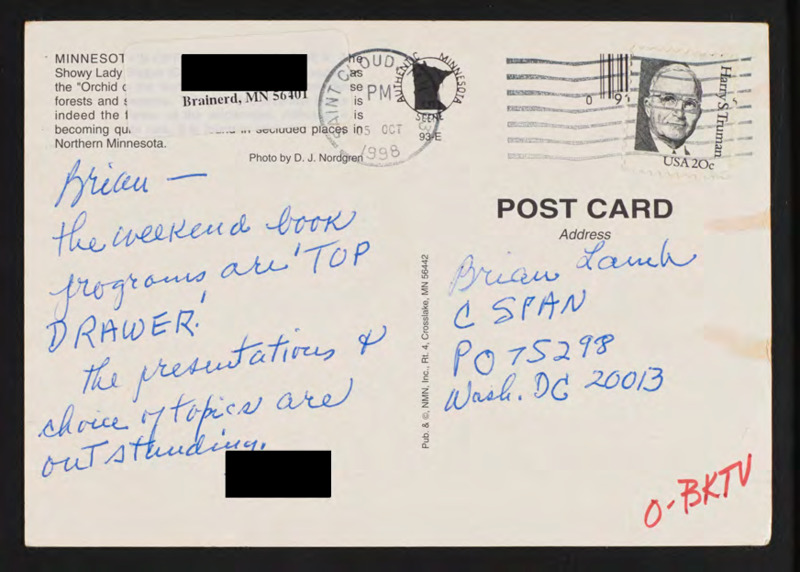 MINNESOT
Showy Lady
the "Orchid
forests and
indeed the
becoming in secluded places in
Northern Minnesota.
Photo by D. J. Nordgren
he
as
se
is
is
Brainerd, MN 56401
SAINT CLOUD
PM
OCT
1998
AUTHENTIC MINNESOTA
SCENE
93-E
Harry S. Truman
USA 20c
Brian —
the weekend book
programs are 'TOP
DRAWER!'
the presentations &
choice of topics are
outstanding.
Pub. & ©, NMN, Inc., Rt. 4, Crosslake, MN 56442
POST CARD
Address
Brian Lamb
C SPAN
PO 75298
Wash. DC 20013
O-BKTV